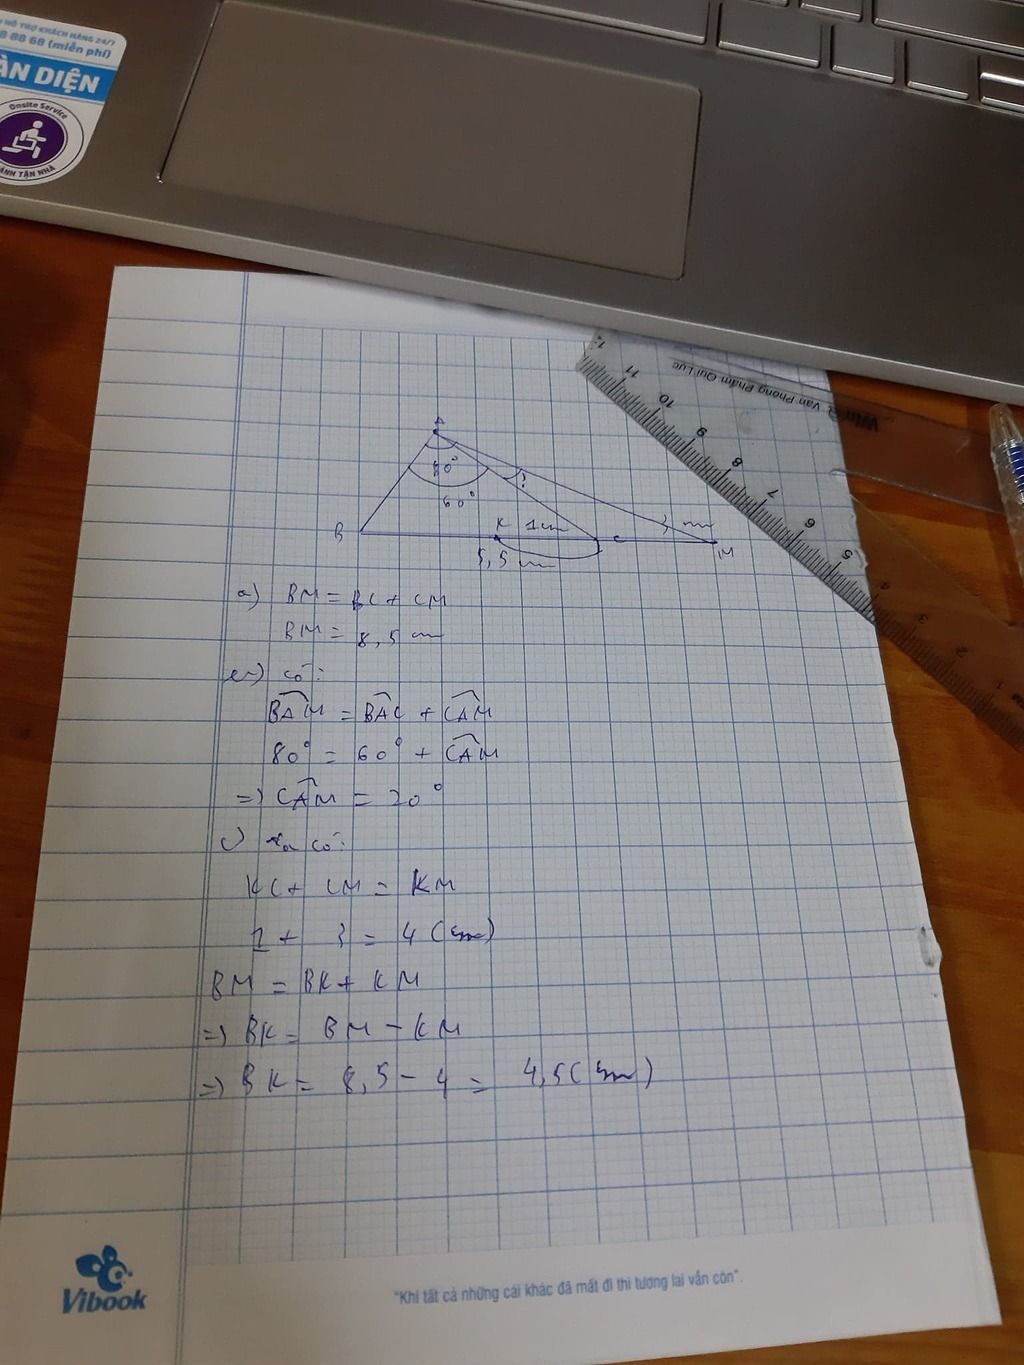 HỖ TRỢ KHÁCH HÀNG 24/7
8 88 68 (miễn phí)
ÀN DIỆN
Onsite Service
ÀNH TẬN NHÀ
12
11
10
9
8
7
6
5
4
3
2
1
Văn Phòng Phẩm Qui Lực
Win
A
80°
60°
?
B
K 1cm
C
3 cm
M
5,5 cm
a) BM = BC + CM
BM = 8,5 cm
có:
BAM = BAC + CAM
80° = 60° + CAM
=> CAM = 20°
c) Ta có:
KC + CM = KM
1 + 3 = 4 (cm)
BM = BK + KM
=> BK = BM - KM
=> BK = 8,5 - 4 = 4,5 (cm)
Vibook
"Khi tất cả những cái khác đã mất đi thì tương lai vẫn còn".